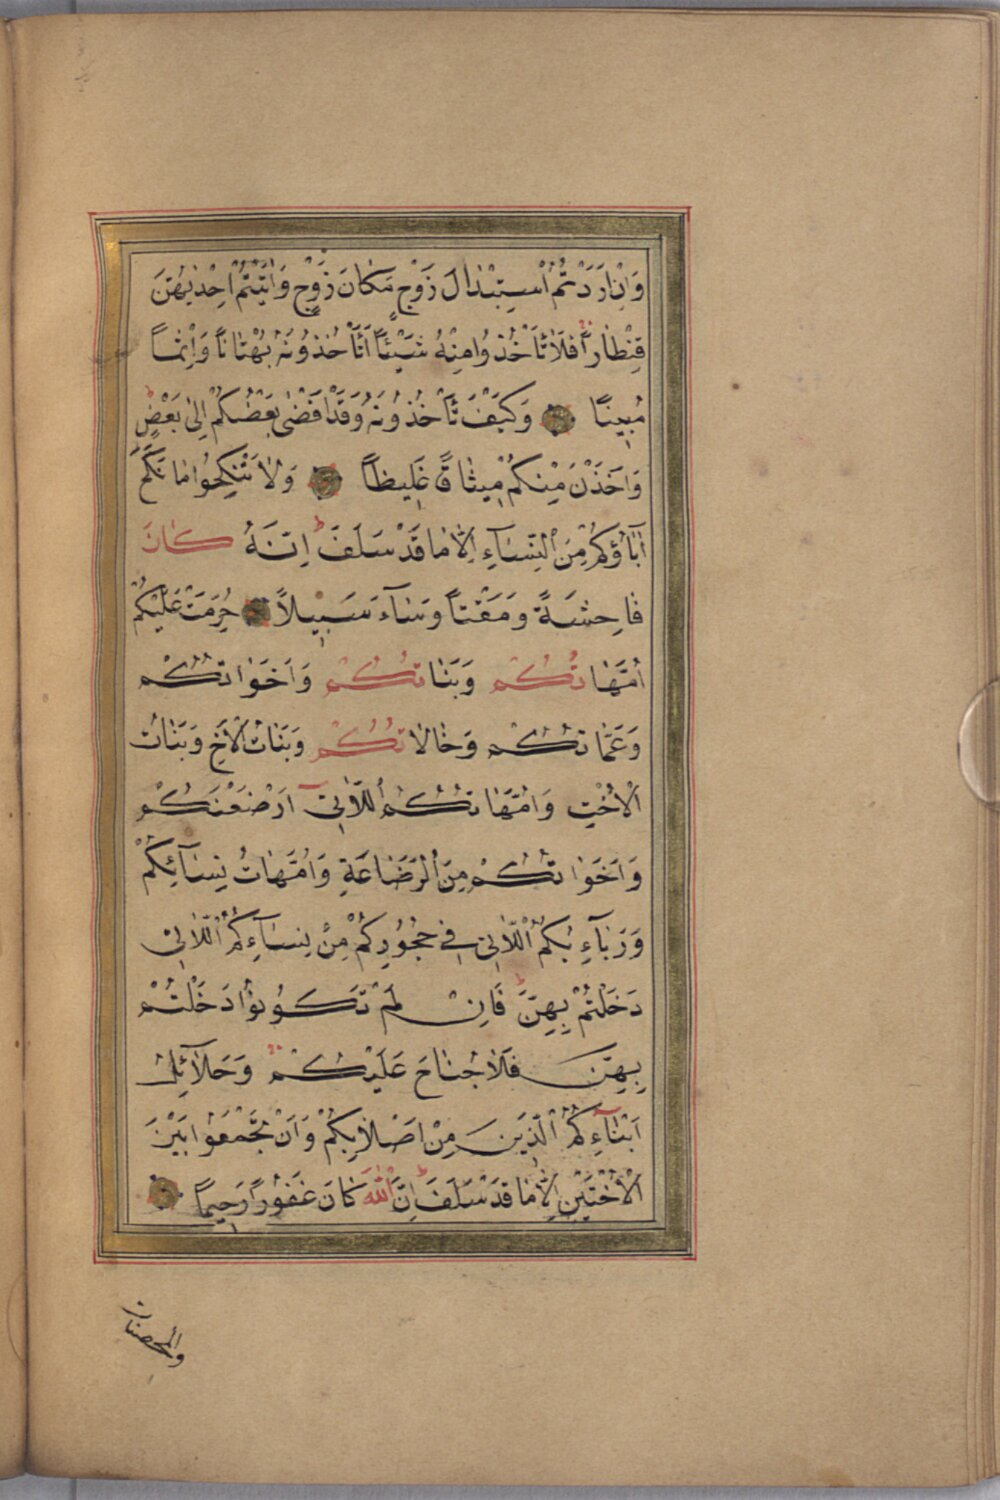 وَاِنْ اَرَدْتُمُ اسْتِبْدٰالَ زَوْجٍ مَكٰانَ زَوْجٍ وَاٰتَيْتُمْ اِحْدٰيهُنَّ
قِنْطٰاراً فَلٰا تَأْخُذُوا مِنْهُ شَيْئاً اَتَأْخُذُونَهُ بُهْتٰاناً وَاِثْماً
مُبِيناً وَكَيْفَ تَأْخُذُونَهُ وَقَدْ اَفْضٰى بَعْضُكُمْ اِلىٰ بَعْضٍ
وَاَخَذْنَ مِنْكُمْ مِيثٰاقاً غَلِيظاً وَلٰا تَنْكِحُوا مٰا نَكَحَ
اٰبٰاؤُكُمْ مِنَ النِّسٰاۤءِ اِلّٰا مٰا قَدْ سَلَفَ اِنَّهُ كٰانَ
فٰاحِشَةً وَمَقْتاً وَسٰاۤءَ سَبِيلاً حُرِّمَتْ عَلَيْكُمْ
اُمَّهٰاتُكُمْ وَبَنٰاتُكُمْ وَاَخَوٰاتُكُمْ
وَعَمّٰاتُكُمْ وَخٰالٰاتُكُمْ وَبَنٰاتُ الْاَخِ وَبَنٰاتُ
الْاُخْتِ وَاُمَّهٰاتُكُمُ اللّٰاتِيۤ اَرْضَعْنَكُمْ
وَاَخَوٰاتُكُمْ مِنَ الرَّضٰاعَةِ وَاُمَّهٰاتُ نِسٰاۤئِكُمْ
وَرَبٰاۤءِبُكُمُ اللّٰاتِي فِي حُجُورِكُمْ مِنْ نِسٰاۤءِكُمُ اللّٰاتِي
دَخَلْتُمْ بِهِنَّ فَاِنْ لَمْ تَكُونُوا دَخَلْتُمْ
بِهِنَّ فَلٰا جُنٰاحَ عَلَيْكُمْ وَحَلٰاۤئِلُ
اَبْنٰاۤءِكُمُ الَّذِينَ مِنْ اَصْلٰابِكُمْ وَاَنْ تَجْمَعُوا بَيْنَ
الْاُخْتَيْنِ اِلّٰا مٰا قَدْ سَلَفَ اِنَّ اللّٰهَ كٰانَ غَفُوراً رَحِيماً
والمحصنات